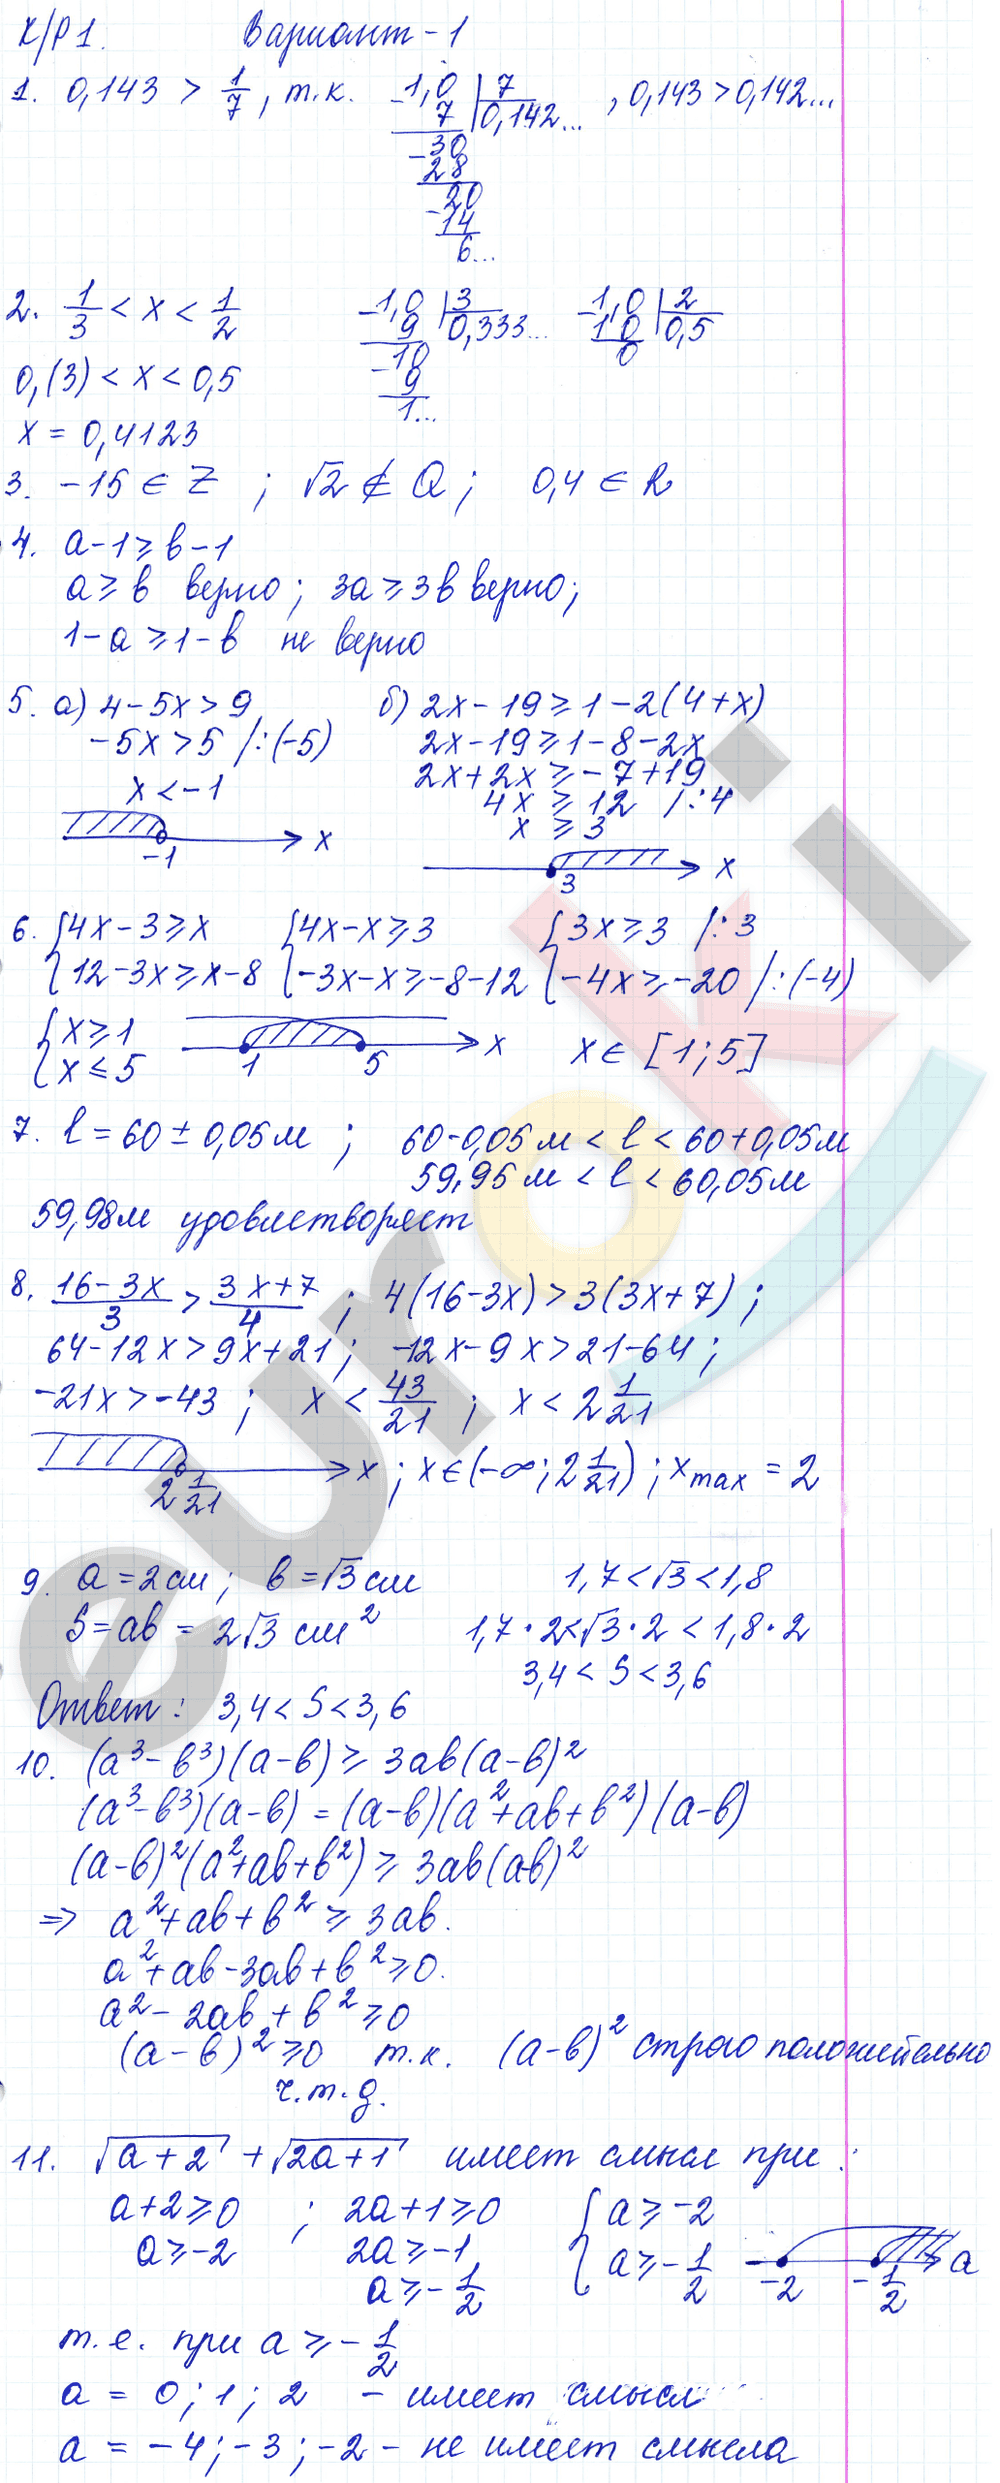 К/Р 1. Вариант - 1
1. 0,143 > 1/7, т.к. -1,0 | 7 , 0,143 > 0,142...
7 | 0,142...
-30
28
-20
14
6...
2. 1/3 < x < 1/2 -1,0 | 3 -1,0 | 2
9 | 0,333... 10 | 0,5
0,(3) < x < 0,5 -10 0
9
1...
x = 0,4123
3. -15 ∈ Z ; √2 ∉ Q ; 0,4 ∈ R
4. a-1 ≥ b-1
a ≥ b верно ; 3a ≥ 3b верно;
1-a ≥ 1-b не верно
5. а) 4-5x > 9 б) 2x-19 ≥ 1-2(4+x)
-5x > 5 /:(-5) 2x-19 ≥ 1-8-2x
2x+2x ≥ -7+19
x < -1 4x ≥ 12 /:4
x ≥ 3
-1 x
3 x
6. { 4x-3 ≥ x { 4x-x ≥ 3 { 3x ≥ 3 /:3
{ 12-3x ≥ x-8 { -3x-x ≥ -8-12 { -4x ≥ -20 /:(-4)
{ x ≥ 1
{ x ≤ 5 1 5 x x ∈ [1;5]
7. l = 60 ± 0,05 м ; 60-0,05 м < l < 60+0,05 м
59,95 м < l < 60,05 м
59,98 м удовлетворяет
8. (16-3x)/3 > (3x+7)/4 ; 4(16-3x) > 3(3x+7) ;
64-12x > 9x+21 ; -12x-9x > 21-64 ;
-21x > -43 ; x < 43/21 ; x < 2 1/21
2 1/21 x ; x ∈ (-∞; 2 1/21) ; x max = 2
9. a = 2 см ; b = √3 см 1,7 < √3 < 1,8
S = ab = 2√3 см² 1,7·2 < √3·2 < 1,8·2
3,4 < S < 3,6
Ответ: 3,4 < S < 3,6
10. (a³-b³)(a-b) ≥ 3ab(a-b)²
(a³-b³)(a-b) = (a-b)(a²+ab+b²)(a-b)
(a-b)²(a²+ab+b²) ≥ 3ab(ab)²
=> a²+ab+b² ≥ 3ab.
a²+ab-3ab+b² ≥ 0.
a²-2ab+b² ≥ 0
(a-b)² ≥ 0 т.к. (a-b)² строго положительно
ч.т.д.
11. √(a+2) + √(2a+1) имеет смысл при :
a+2 ≥ 0 ; 2a+1 ≥ 0 { a ≥ -2
a ≥ -2 2a ≥ -1 { a ≥ -1/2 -2 -1/2 a
a ≥ -1/2
т.е. при a ≥ -1/2
a = 0; 1; 2 - имеет смысл
a = -4; -3; -2 - не имеет смысла
euroki